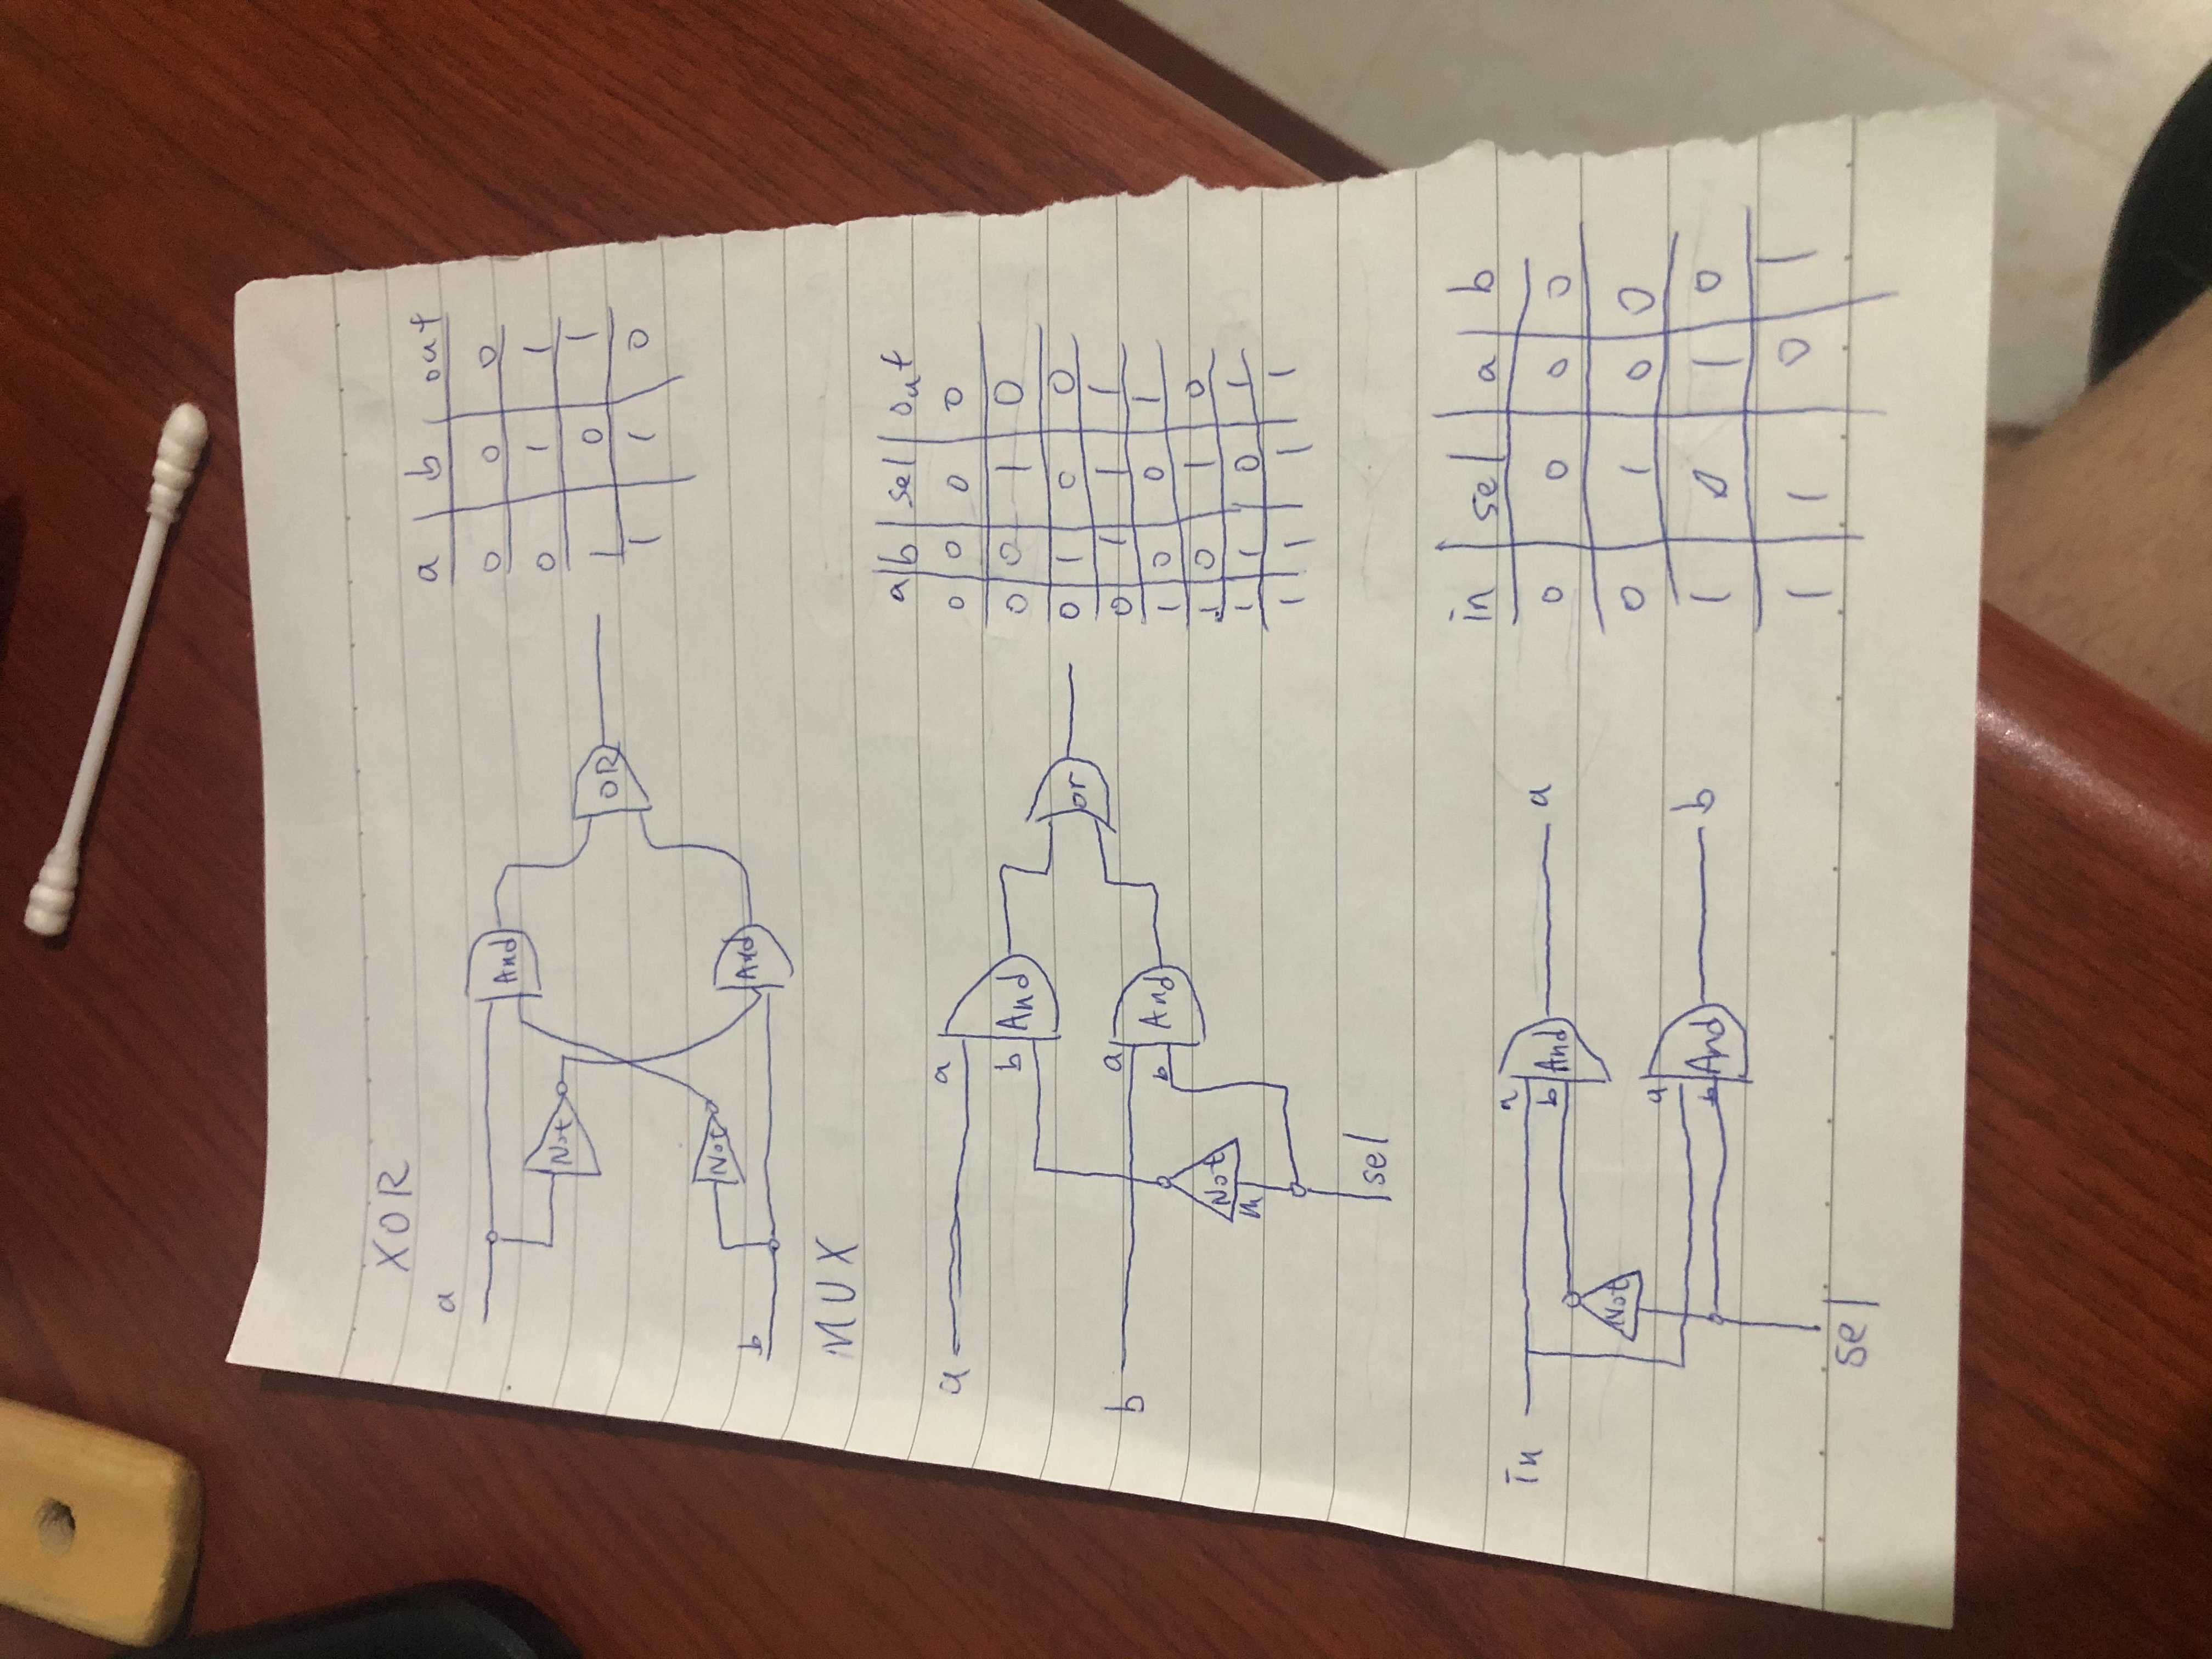 XOR
a
And
Not
OR
Not
And
b
a b out
0 0 0
0 1 1
1 0 1
1 1 0
MUX
a a
b And
or
b a
b And
Not
in
sel
a b sel out
0 0 0 0
0 0 1 0
0 1 0 0
0 1 1 1
1 0 0 1
1 0 1 0
1 1 0 1
1 1 1 1
in a
b And a
Not
a
b And b
sel
in sel a b
0 0 0 0
0 1 0 0
1 0 1 0
1 1 0 1